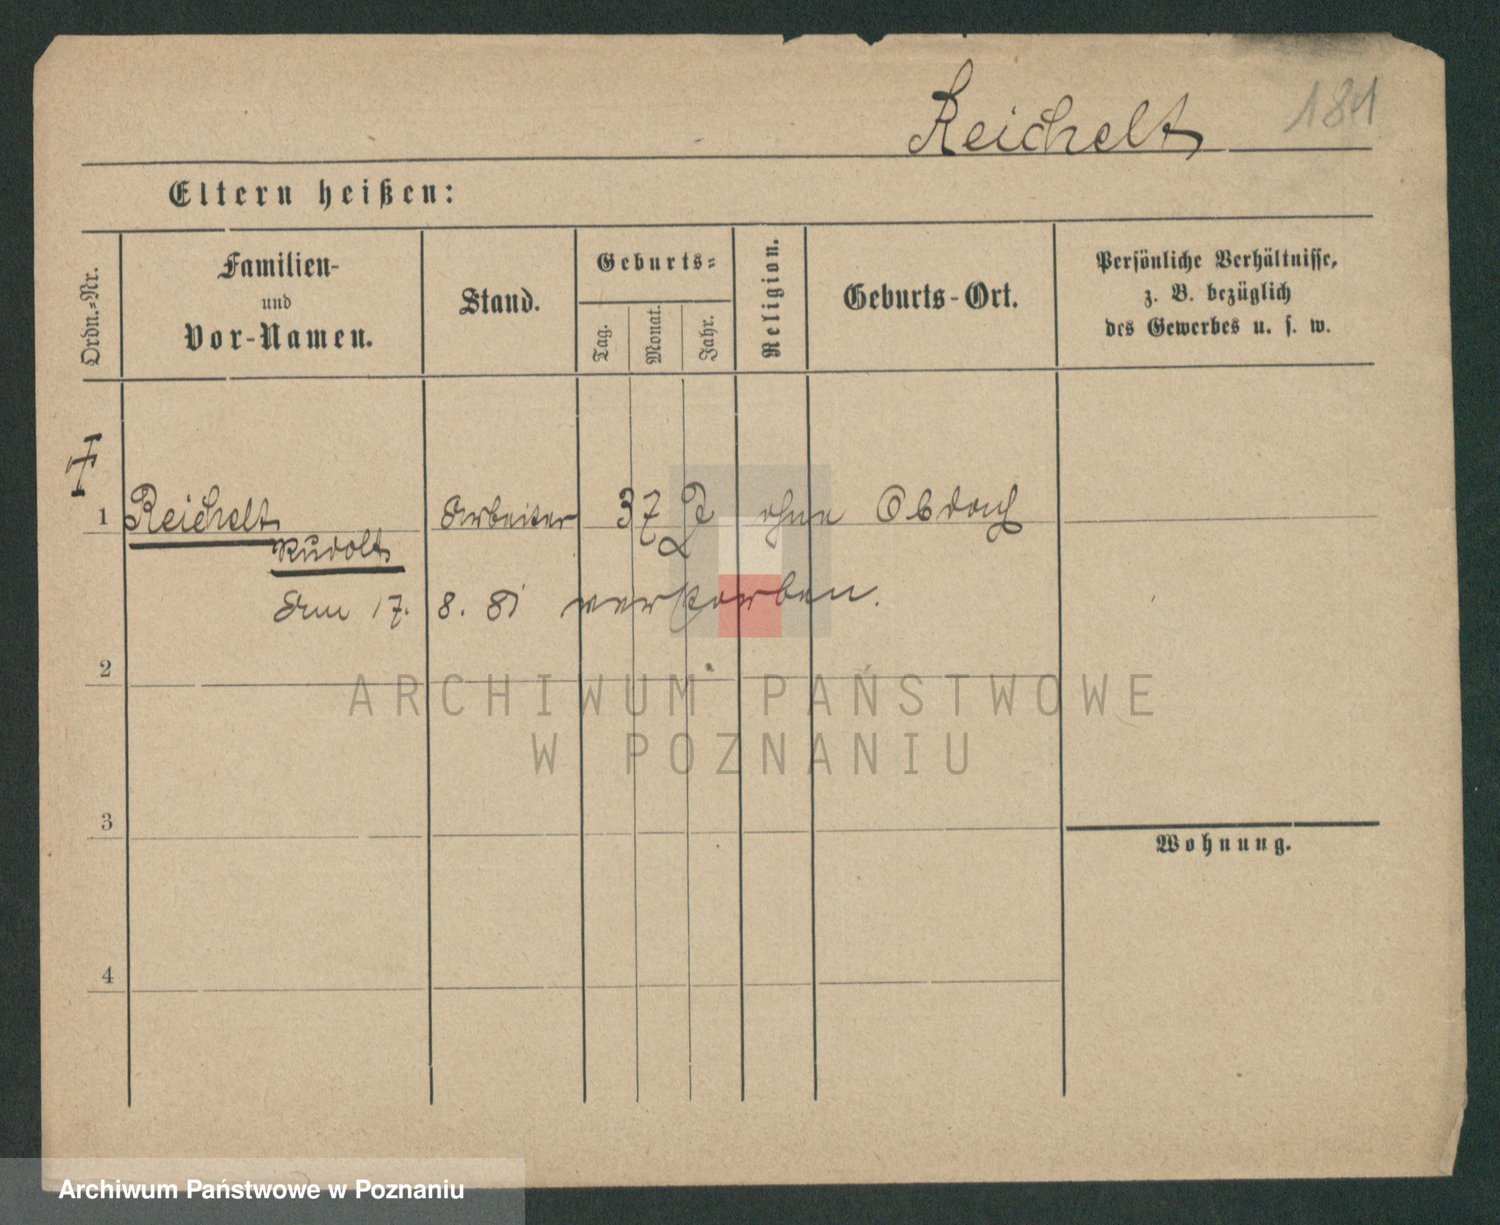 Reichelt 181
Eltern heißen:
Ordn.-Nr.
Familien-
und
Vor-Namen.
Stand.
Geburts-
Tag.
Monat.
Jahr.
Religion.
Geburts-Ort.
Persönliche Verhältnisse,
z. B. bezüglich
des Gewerbes u. s. w.
1 Reichelt Arbeiter 37 J ohne Obdach
Rudolf
Am 17. 8. 81 verstorben.
2
3
Wohnung.
4
ARCHIWUM PAŃSTWOWE
W POZNANIU
Archiwum Państwowe w Poznaniu